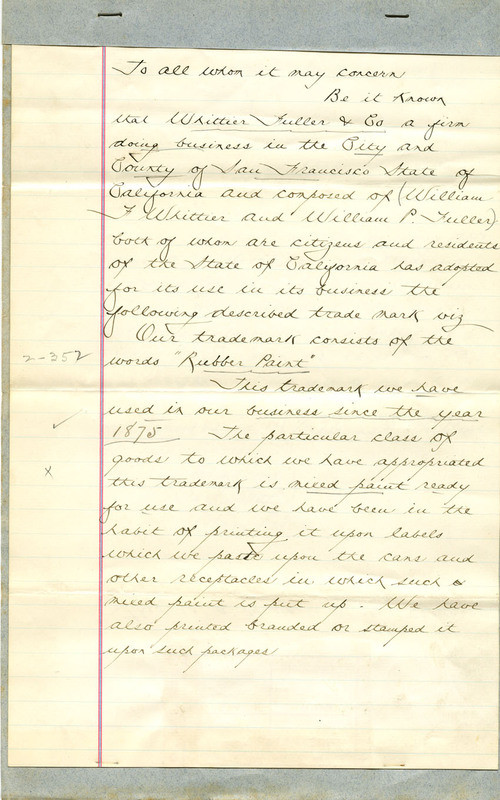 To all whom it may concern
Be it Known
that Whittier Fuller & Co a firm
doing business in the City and
County of San Francisco State of
California and composed of (William
F Whittier and William P. Fuller)
both of whom are citizens and residents
of the State of California has adopted
for its use in its business the
following described trade mark viz
Our trademark consists of the
2-352
words "Rubber Paint"
This trademark we have
used in our business since the year
1875 The particular class of
goods to which we have appropriated
x
this trademark is mixed paint ready
for use and we have been in the
habit of printing it upon labels
which we paste upon the cans and
other receptacles in which such
mixed paint is put up. We have
also printed branded or stamped it
upon such packages